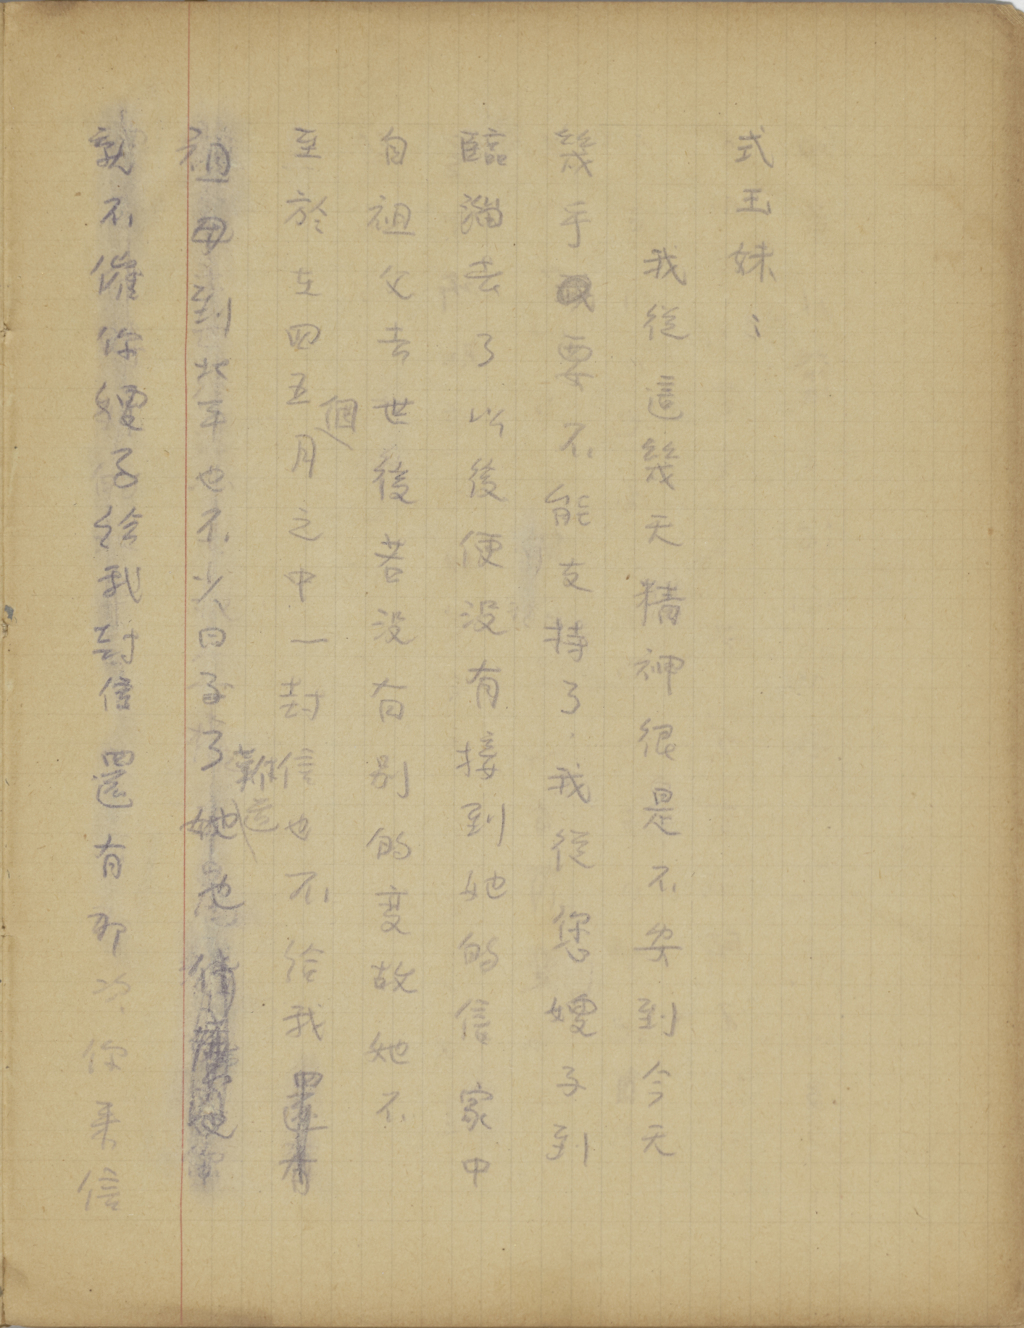 式玉妹：
我從這幾天精神很是不安到今天
幾乎要不能支持了．我從您嫂子到
臨淄去了以後便沒有接到她的信家中
自祖父去世後若沒有別的变故她不
至於在四五個月之中一封信也不給我
祖母到北平也不少日子了难道她也
就不催你嫂子給我封信還有那次你来信